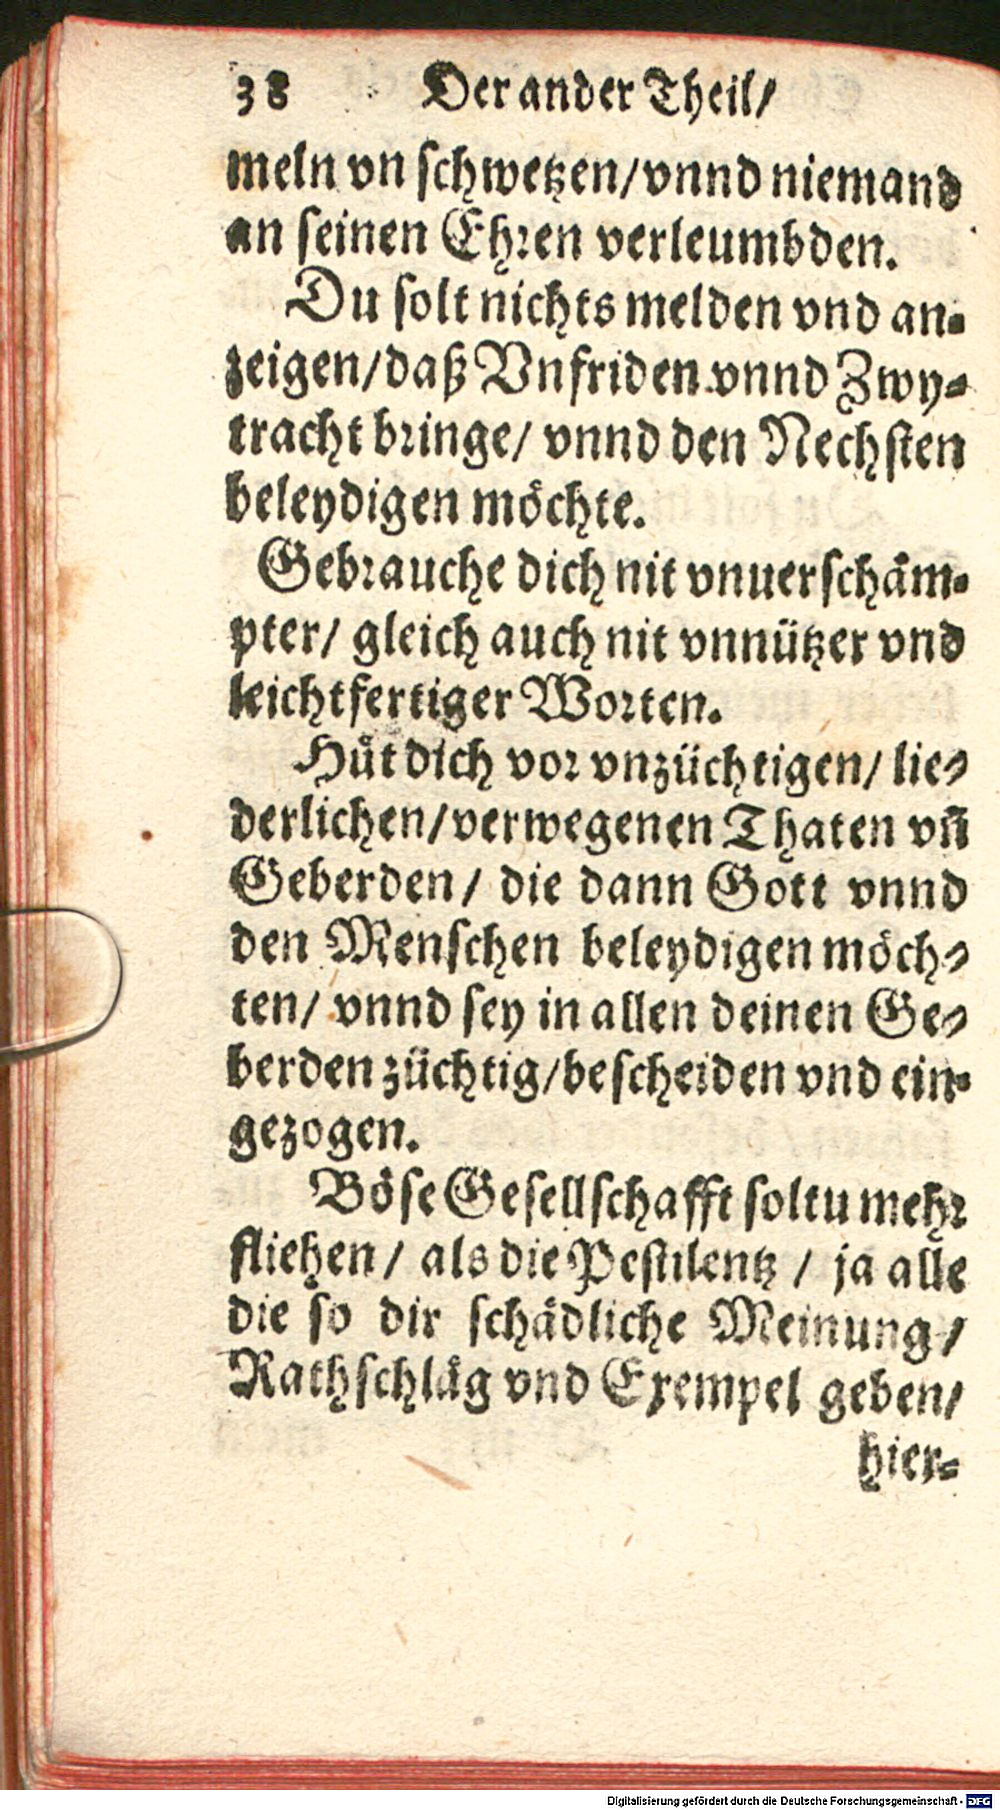 38 Der ander Theil/
meln vn schwetzen/vnnd niemand
an seinen Ehren verleumbden.
Du solt nichts melden vnd an-
zeigen/daß Vnfriden vnnd Zwy-
tracht bringe/ vnnd den Nechsten
beleydigen möchte.
Gebrauche dich nit vnuerschäm-
pter/ gleich auch nit vnnützer vnd
leichtfertiger Worten.
Hüt dich vor vnzüchtigen/ lie-
derlichen/verwegenen Thaten vñ
Geberden/ die dann Gott vnnd
den Menschen beleydigen möch-
ten/ vnnd sey in allen deinen Ge-
berden züchtig/bescheiden vnd ein-
gezogen.
Böse Gesellschafft soltu mehr
fliehen/ als die Pestilentz / ja alle
die so dir schädliche Meinung/
Rathschläg vnd Exempel geben/
hier-
Digitalisierung gefördert durch die Deutsche Forschungsgemeinschaft - DFG